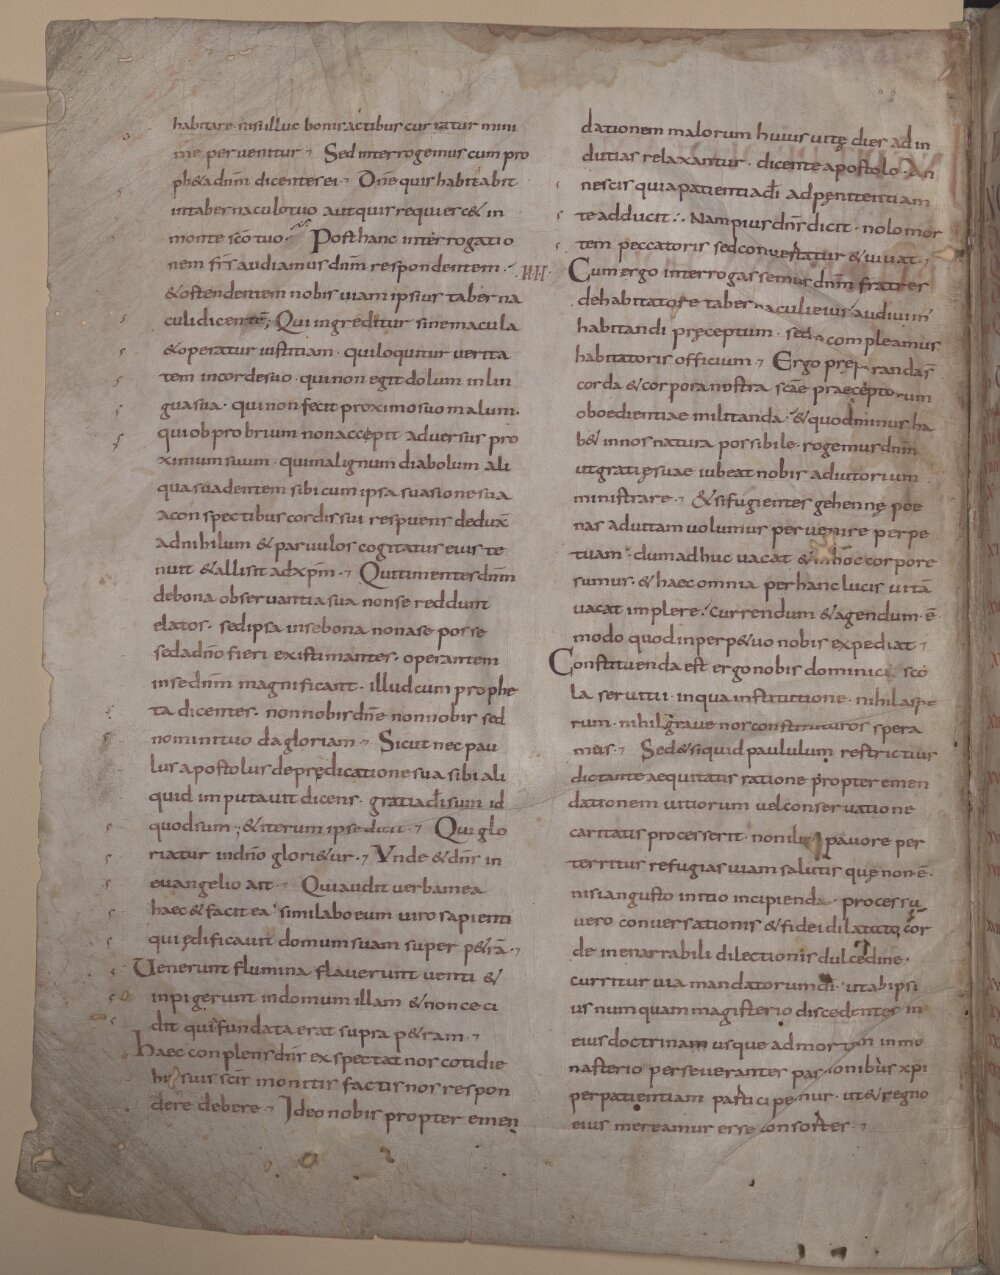 habitare. nisi illuc bonis actibus curratur mini
me pervenitur; Sed interrogemus cum pro
ph&a dnm dicentes ei; Dne quis habitabit
in tabernaculo tuo aut quis requiesc& in
monte sco tuo; Post hanc interrogatio
nem frs audiamus dnm respondentem.
& ostendentem nobis viam ipsius taberna
culi dicentē; Qui ingreditur sine macula
& operatur iustitiam. qui loquitur verita
tem in corde suo. qui non egit dolum in lin
gua sua. qui non fecit proximo suo malum.
qui obprobrium non accepit adversus pro
ximum suum. qui malignum diabolum ali
qua suadentem sibi cum ipsa suasione sua
a conspectibus cordis sui respuens deduxꝉ
ad nihilum & parvulos cogitatus eius te
nuit & allisit ad xpm; Qui timentes dnm
de bona observantia sua non se reddunt
elatos. sed ipsa in se bona non a se posse
sed a dno fieri existimantes. operantem
in se dnm magnificant. illud cum prophe
ta dicentes. non nobis dne non nobis sed
nomini tuo da gloriam; Sicut nec pau
lus apostolus de prędicatione sua sibi ali
quid imputavit dicens. gratia di sum id
quod sum; & iterum ipse dicit; Qui glo
riatur in dno glori&ur; Unde & dns in
evangelio ait; Qui audit verba mea
haec & facit ea similabo eum viro sapienti
qui ędificavit domum suam super p&rā;
Venerunt flumina flaverunt venti &
inpigerunt in domum illam & non ceci
dit quia fundata erat supra p&ram;
Haec conplens dns exspectat nos cotidie
his suis scis monitis factis nos respon
dere debere; Ideo nobis propter emen
IIII.
dationem malorum huius vitę dies ad in
dutias relaxantur. dicente apostolo. An
nescis quia patientia di ad pęnitentiam
te adducit; Nam pius dns dicit. nolo mor
tem peccatoris sed convertatur & vivat;
Cum ergo interrogassemus dnm fratres
de habitatore tabernaculi eius audivimꝰ
habitandi pręceptum. sed compleamus
habitatoris officium; Ergo pręparanda sꝉ
corda & corpora nostra scae praeceptorum
oboedientiae militanda. & quod minus ha
b& in nos natura possibile. rogemus dnm
ut gratię suae iubeat nobis adiutorium
ministrare; & si fugientes gehennę poe
nas ad vitam volumus pervenire perpe
tuam. dum adhuc vacat & in hoc corpore
sumus. & haec omnia per hanc lucis vitā
vacat implere. currendum & agendum ē
modo quod in perp&uo nobis expediat;
Constituenda est ergo nobis dominici sco
la servitii. in qua institutione. nihil aspe
rum. nihil grave nos constituturos spera
mus; Sed & si quid paululum restrictius
dictante aequitatis ratione propter emen
dationem vitiorum vel conservatione
caritatis processerit. non ilico pavore per
territus refugias viam salutis quę non ē.
nisi angusto initio incipienda. processu
vero conversationis & fidei dilatato cor
de inenarrabili dilectionis dulcedine.
curritur via mandatorum di. ut ab ipsi
us numquam magisterio discedentes in
eius doctrinam usque ad mortem in mo
nasterio perseverantes passionibus xpi
per patientiam participemur. ut & regno
eius mereamur esse consortes;